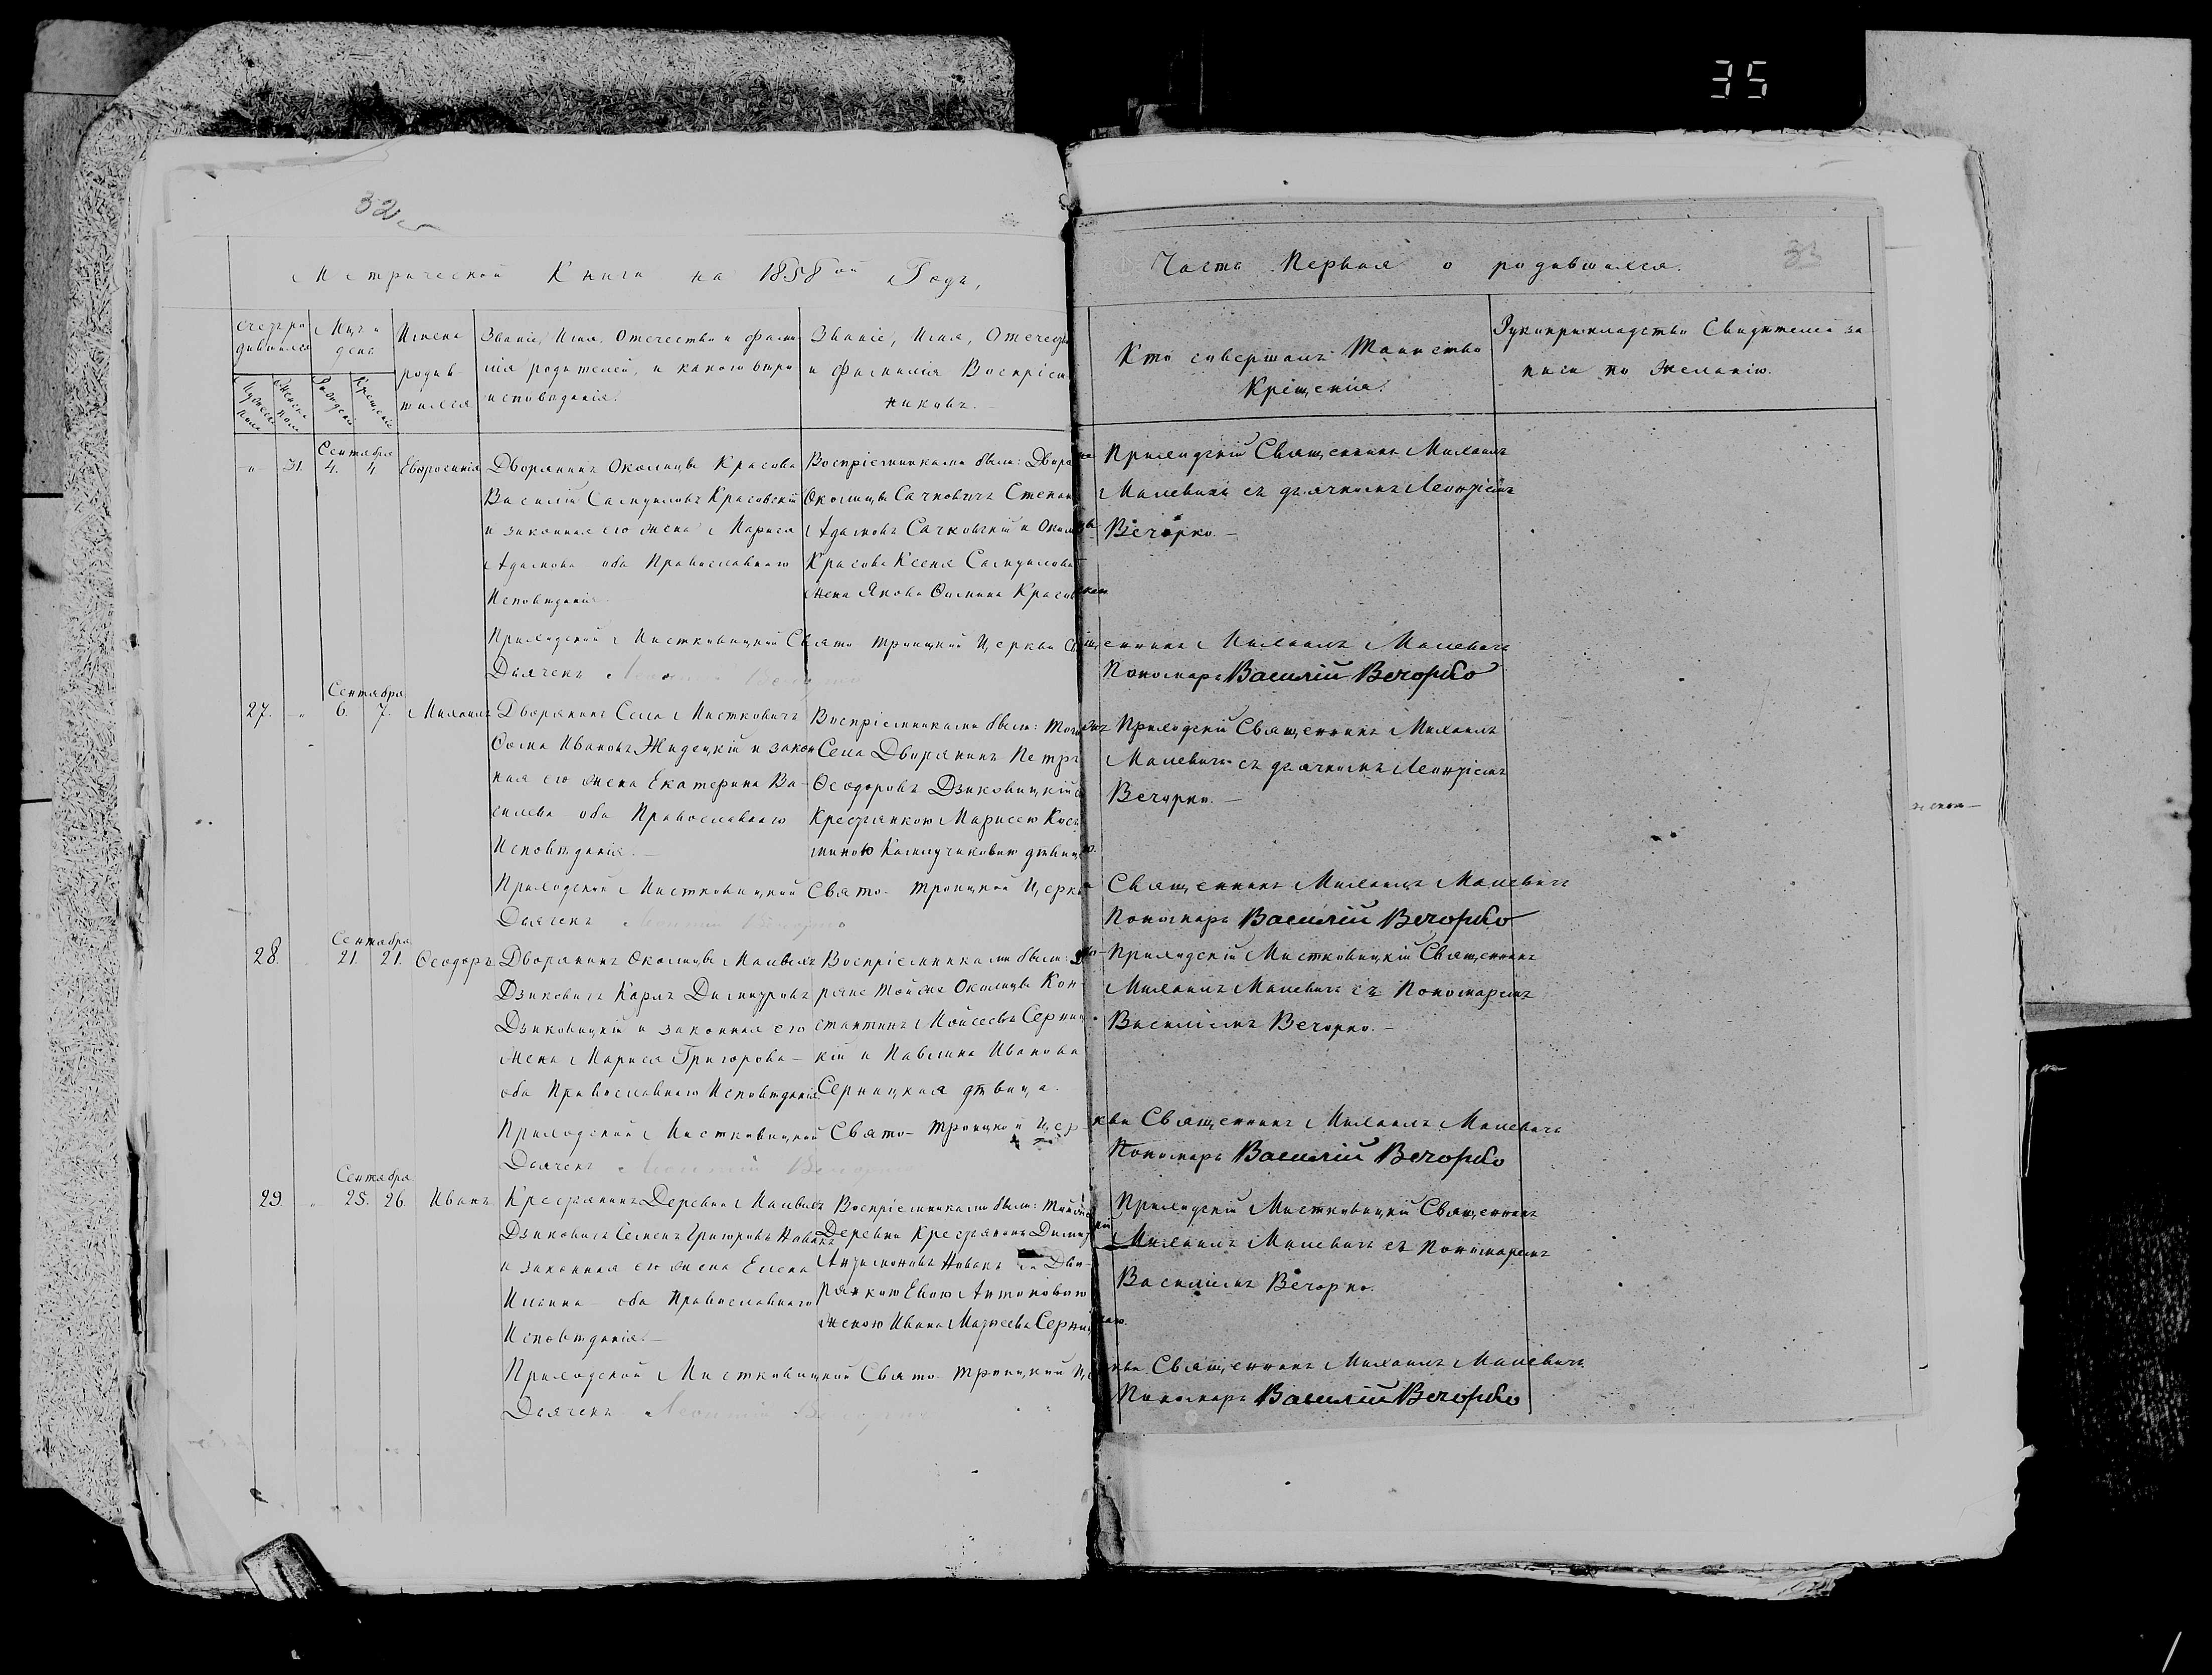 35
32
33
Метрической Книги на 1858ой Годъ,
Часть Первая о родившихся.
Счетъ родившихся
Мужеска пола
Женска пола
Мѣс. и день
Рожденія
Крещенія
Имена родившихся
Званіе, Имя, Отечество и фамилія родителей, и какого вѣроисповѣданія.
Званіе, Имя, Отечество и Фамилія Воспріемниковъ.
Кто совершалъ Таинство Крещенія.
Рукоприкладство Свидѣтелей записи по Желанію.
Сентября
" 31. 4. 4 Евфросинія
Дворянинъ Околицы Красова
Василій Самуиловъ Красовскій
и законная его жена Мариса
Адамова оба Православнаго
Исповѣданія.
Воспріемниками были: Дворя
Околицы Сачковичъ Степанъ
Адамовъ Сачковскій и Околицы
Красова Ксеня Самуилова
жена Якова Фомина Красовская
Приходскій Священникъ Михаилъ
Малевичъ съ дьячкомъ Леонтіемъ
Вечорко.
Приходской Мистковицкой Свято Троицкой Церкви Священникъ Михаилъ Малевичъ
Дьячекъ
Пономарь Василій Вечорко
Сентября
27. " 6. 7. Михаилъ
Дворянинъ Села Мисткович
Фома Ивановъ Жидецкій и закон
ная его жена Екатерина Ва-
сильева оба Православнаго
Исповѣданія.
Воспріемниками были: того
Села Дворянинъ Петръ
Феодоровъ Дзиковицкій съ
Крестьянкою Марисею Косъ
миною дѣвиц
Приходскій Священникъ Михаилъ
Малевичъ съ дьячкомъ Леонтіемъ
Вечорко.
Приходской Мистковицкой Свято-Троицкой Церкви Священникъ Михаилъ Малевичъ
Дьячекъ
Пономарь Василій Вечорко
Сентября
28. 21. 21. Феодоръ
Дворянинъ Околицы Малыхъ
Дзиковичъ Карлъ Димитровъ
Дзиковицкій и законная его
жена Мариса Григорова
оба Православнаго Исповѣданія
Воспріемниками были: дво-
ряне той же Околицы Кон-
стантинъ Моисеевъ Сернич
кій и Павлина Иванова
Серницкая дѣвица.
Приходскій Мистковицкій Священникъ
Михаилъ Малевичъ съ Пономаремъ
Василіемъ Вечорко.
Приходской Мистковицкой Свято-Троицкой Церкви Священникъ Михаилъ Малевичъ
Дьячекъ Леонтій Вечорко
Пономарь Василій Вечорко
Сентября
29. " 25. 26. Иванъ
Крестьянинъ Деревни Малыхъ
Дзиковичъ Семенъ Григоровъ Новакъ
и законная его жена Елена
Ильина оба Православнаго
Исповѣданія.
Воспріемниками были: той же
Деревни Крестьянинъ Димитрій
Новакъ Дво-
рянкою Евою Антоновою
женою Ивана Матвеева Серницкаго
Приходскій Мистковицкій Священникъ
Михаилъ Малевичъ съ Пономаремъ
Василіемъ Вечорко.
Приходской Мистковицкой Свято-Троицкой Церкви Священникъ Михаилъ Малевичъ
Дьячекъ Леонтій Вечорко
Пономарь Василій Вечорко